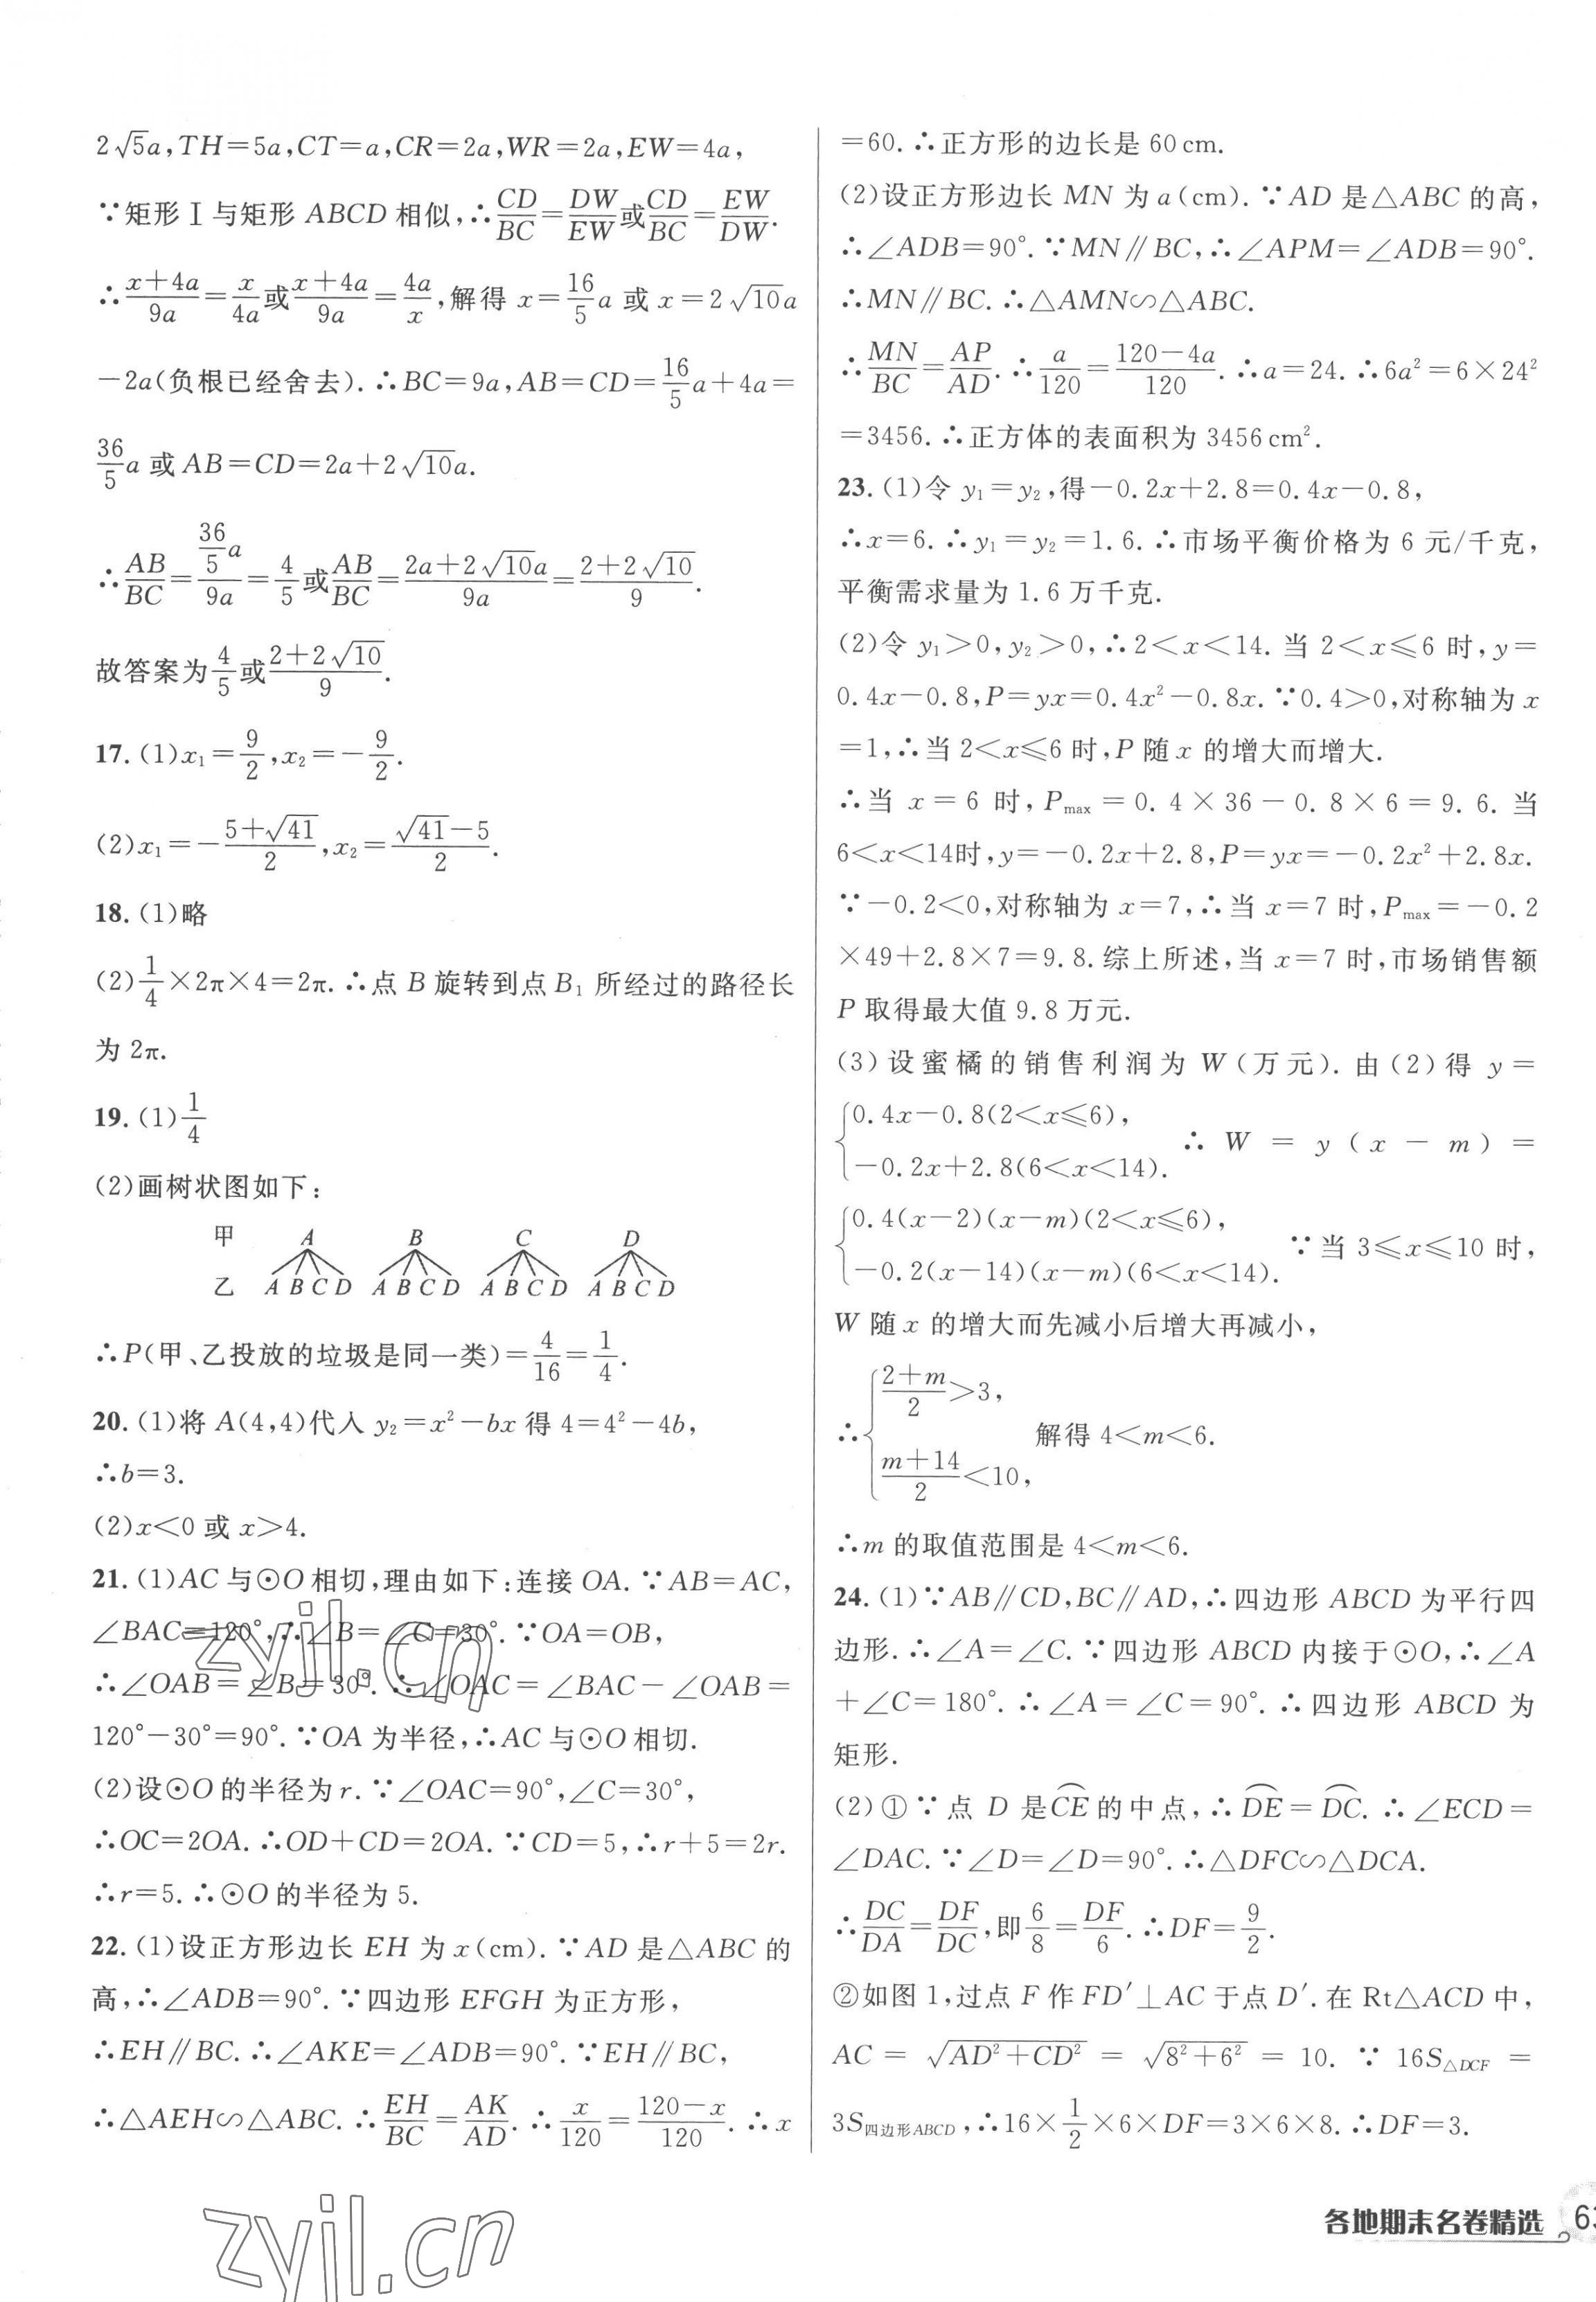 2√5a,TH=5a,CT=a,CR=2a,WR=2a,EW=4a,
∵矩形Ⅰ与矩形 ABCD 相似,∴CD/BC=DW/EW或CD/BC=EW/DW.
∴(x+4a)/9a=x/4a或(x+4a)/9a=4a/x,解得 x=16/5a 或 x=2√10a
-2a(负根已经舍去).∴BC=9a,AB=CD=16/5a+4a=
36/5a 或 AB=CD=2a+2√10a.
∴AB/BC=(36/5a)/9a=4/5或AB/BC=(2a+2√10a)/9a=(2+2√10)/9.
故答案为4/5或(2+2√10)/9.
17.(1)x₁=9/2,x₂=-9/2.
(2)x₁=-(5+√41)/2,x₂=(√41-5)/2.
18.(1)略
(2)1/4×2π×4=2π.∴点 B 旋转到点 B₁ 所经过的路径长
为 2π.
19.(1)1/4
(2)画树状图如下:
甲 A B C D
乙 A B C D A B C D A B C D A B C D
∴P(甲、乙投放的垃圾是同一类)=4/16=1/4.
20.(1)将 A(4,4)代入 y₂=x²-bx 得 4=4²-4b,
∴b=3.
(2)x<0 或 x>4.
21.(1)AC 与⊙O 相切,理由如下:连接 OA.∵AB=AC,
∠BAC=120°,∴∠B=∠C=30°.∵OA=OB,
∴∠OAB=∠B=30°.∴∠OAC=∠BAC-∠OAB=
120°-30°=90°.∵OA 为半径,∴AC 与⊙O 相切.
(2)设⊙O 的半径为 r.∵∠OAC=90°,∠C=30°,
∴OC=2OA.∴OD+CD=2OA.∵CD=5,∴r+5=2r.
∴r=5.∴⊙O 的半径为 5.
22.(1)设正方形边长 EH 为 x(cm).∵AD 是△ABC 的
高,∴∠ADB=90°.∵四边形 EFGH 为正方形,
∴EH∥BC.∴∠AKE=∠ADB=90°.∵EH∥BC,
∴△AEH∽△ABC.∴EH/BC=AK/AD.∴x/120=(120-x)/120.∴x
=60.∴正方形的边长是 60 cm.
(2)设正方形边长 MN 为 a(cm).∵AD 是△ABC 的高,
∴∠ADB=90°.∵MN∥BC,∴∠APM=∠ADB=90°.
∴MN∥BC.∴△AMN∽△ABC.
∴MN/BC=AP/AD.∴a/120=(120-4a)/120.∴a=24.∴6a²=6×24²
=3456.∴正方体的表面积为 3456 cm².
23.(1)令 y₁=y₂,得-0.2x+2.8=0.4x-0.8,
∴x=6.∴y₁=y₂=1.6.∴市场平衡价格为 6 元/千克,
平衡需求量为 1.6 万千克.
(2)令 y₁>0,y₂>0,∴2<x<14.当 2<x≤6 时,y=
0.4x-0.8,P=yx=0.4x²-0.8x.∵0.4>0,对称轴为 x
=1,∴当 2<x≤6 时,P 随 x 的增大而增大.
∴当 x=6 时,Pmax=0.4×36-0.8×6=9.6.当
6<x<14时,y=-0.2x+2.8,P=yx=-0.2x²+2.8x.
∵-0.2<0,对称轴为 x=7,∴当 x=7 时,Pmax=-0.2
×49+2.8×7=9.8.综上所述,当 x=7 时,市场销售额
P 取得最大值 9.8 万元.
(3)设蜜橘的销售利润为 W(万元).由(2)得 y=
{0.4x-0.8(2<x≤6),
-0.2x+2.8(6<x<14). ∴W=y(x-m)=
{0.4(x-2)(x-m)(2<x≤6),
-0.2(x-14)(x-m)(6<x<14). ∵当 3≤x≤10 时,
W 随 x 的增大而先减小后增大再减小,
∴{(2+m)/2>3,
(m+14)/2<10, 解得 4<m<6.
∴m 的取值范围是 4<m<6.
24.(1)∵AB∥CD,BC∥AD,∴四边形 ABCD 为平行四
边形.∴∠A=∠C.∵四边形 ABCD 内接于⊙O,∴∠A
+∠C=180°.∴∠A=∠C=90°.∴四边形 ABCD 为
矩形.
(2)①∵点 D 是⌒CE的中点,∴⌒DE=⌒DC.∴∠ECD=
∠DAC.∵∠D=∠D=90°.∴△DFC∽△DCA.
∴DC/DA=DF/DC,即6/8=DF/6.∴DF=9/2.
②如图 1,过点 F 作 FD′⊥AC 于点 D′.在 Rt△ACD 中,
AC=√(AD²+CD²)=√(8²+6²)=10.∵16S△DCF=
3S四边形ABCD,∴16×1/2×6×DF=3×6×8.∴DF=3.
zyjl.cn
zyjl.cn
各地期末名卷精选